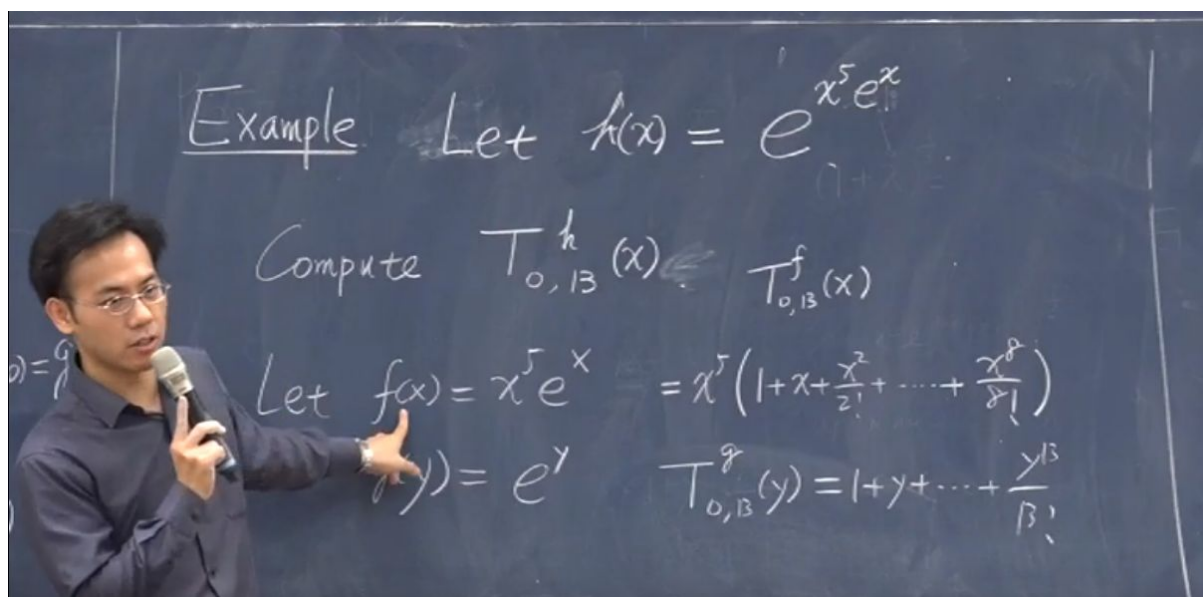 Example Let h(x) = e^{x^5 e^x}
Compute T_{0,13}^h (x) T_{0,13}^f (x)
Let f(x) = x^5 e^x = x^5 (1+x+\frac{x^2}{2!}+-----+\frac{x^8}{8!})
(y) = e^y T_{0,13}^g (y) = 1+y+---+\frac{y^{13}}{13!}